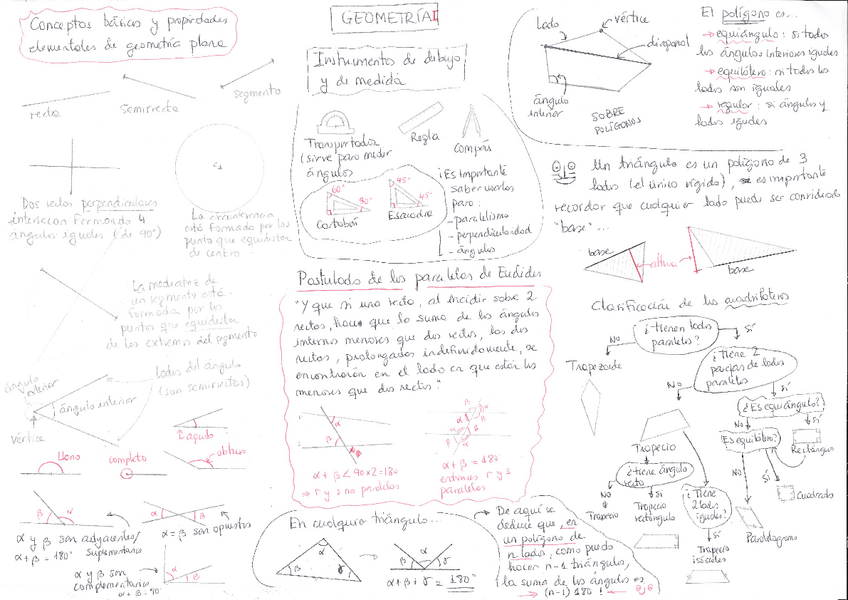 Conceptos básicos y propiedades
elementales de geometría plana
recta
semirrecta
segmento
Dos rectas perpendiculares
intersecan formando 4
ángulos iguales (de 90°)
La circunferencia
está formada por los
puntos que equidistan
de centro.
La mediatriz de
un segmento está
formada por los
puntos que equidistan
de los extremos del segmento
ángulo
exterior
lados del ángulo
(son semirrectas)
ángulo interior
vértice
agudo
llano
completo
obtuso
β α
α β
α y β son adyacentes/
suplementarios
α + β = 180°
α = β son opuestos
α y β son
complementarios
α + β = 90°
GEOMETRÍA I
Instrumentos de dibujo
y de medida
Transportador
(sirve para medir
ángulos)
Regla
Compás
60°
90°
Cartabón
45°
45°
Escuadra
Es importante
saber usarlos
para:
- paralelismo
- perpendicularidad
- ángulos
Postulado de las paralelas de Euclides
"Y que si una recta, al incidir sobre 2
rectas, hace que la suma de los ángulos
internos menores que dos rectos, las dos
rectas, prolongadas indefinidamente, se
encontrarán en el lado en que están los
menores que dos rectos."
α + β < 90×2=180
⇒ r y s no paralelas
α + β = 180
entonces r y s
paralelas
En cualquier triángulo...
α
β γ
β α γ
α + β + γ = 180°
De aquí se
deduce que, en
un polígono de
n lados, como puedo
hacer n-1 triángulos,
la suma de los ángulos es
→ (n-1) 180 ! ←
Lado
vértice
diagonal
ángulo
interior
SOBRE
POLÍGONOS
El polígono es...
→ equiángulo: si todos
los ángulos interiores iguales
→ equilátero: si todos los
lados son iguales
→ regular: si ángulos y
lados iguales
Un triángulo es un polígono de 3
lados (el único rígido), es importante
recordar que cualquier lado puede ser considerado
"base"...
base
altura
base
Clasificación de los cuadriláteros
¿Tienen lados
paralelos?
NO
SÍ
Trapezoide
¿Tiene 2
parejas de lados
paralelos
NO
SÍ
¿Es equiángulo?
NO
SÍ
Es equilátero?
Rectángulo
NO
SÍ
Cuadrado
Paralelogramo
Trapecio
¿Tiene ángulo
recto
NO
Sí
Trapecio
Trapecio
rectángulo
¿Tiene
2 lados
iguales?
Trapecio
isósceles